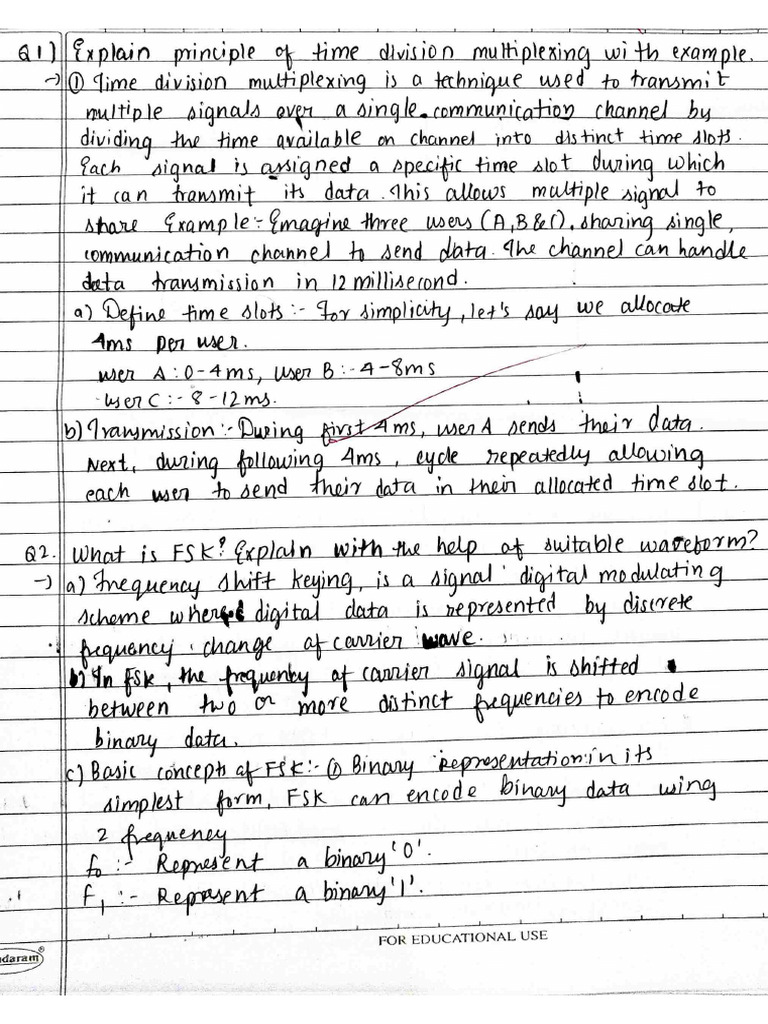 Q1) Explain principle of time division multiplexing with example.
→ ① Time division multiplexing is a technique used to transmit
multiple signals over a single communication channel by
dividing the time available on channel into distinct time slots.
Each signal is assigned a specific time slot during which
it can transmit its data. This allows multiple signal to
share Example:- Emagine three users (A, B & C), sharing single,
communication channel to send data. The channel can handle
data transmission in 12 millisecond.
a) Define time slots:- For simplicity, let's say we allocate
4ms per user.
user A : 0-4ms, user B :- 4-8ms
user C :- 8-12ms.
b) Transmission:- During first 4ms, user A sends their data.
Next, during following 4ms, cycle repeatedly allowing
each user to send their data in their allocated time slot.
Q2. What is FSK? Explain with the help of suitable waveform?
→ a) Frequency shift keying, is a signal digital modulating
scheme where digital data is represented by discrete
frequency change of carrier wave.
b) In FSK, the frequenby of carrier signal is shifted
between two or more distinct frequencies to encode
binary data.
c) Basic concepts of FSK:- ① Binary representation: in its
simplest form, FSK can encode binary data using
2 frequency
f₀ :- Represent a binary '0'.
f₁ :- Represent a binary '1'.
FOR EDUCATIONAL USE
ndaram®